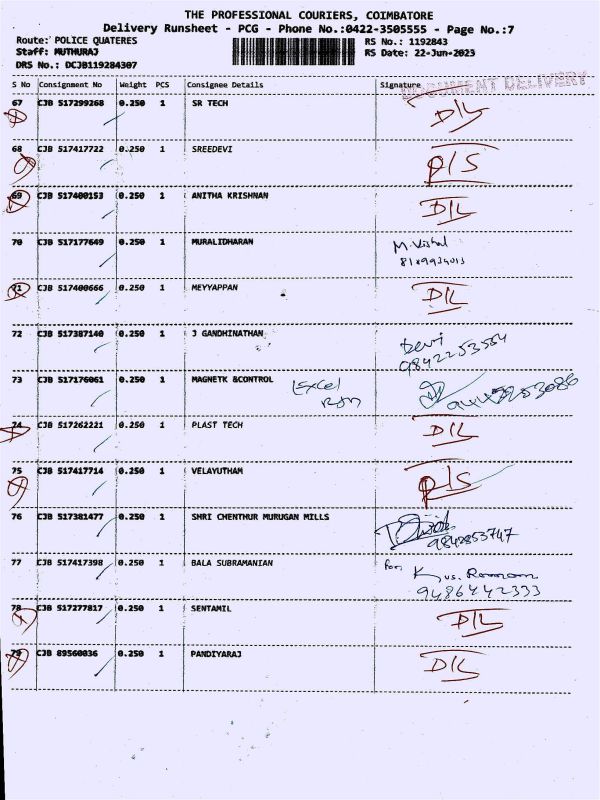 THE PROFESSIONAL COURIERS, COIMBATORE
Delivery Runsheet - PCG - Phone No.:0422-3505555 - Page No.:7
Route: POLICE QUATERES RS No.: 1192843
Staff: MUTHURAJ RS Date: 22-Jun-2023
DRS No.: DCJB119284307
S No Consignment No Weight PCS Consignee Details Signature
DOCUMENT DELIVERY
67 CJB 517299268 0.250 1 SR TECH D/L
68 CJB 517417722 0.250 1 SREEDEVI P/S
69 CJB 517400153 0.250 1 ANITHA KRISHNAN D/L
70 CJB 517177649 0.250 1 MURALIDHARAN M. Vishal
71 CJB 517400666 0.250 1 MEYYAPPAN D/L
72 CJB 517387140 0.250 1 J GANDHINATHAN Devi
9842253554
73 CJB 517176061 0.250 1 MAGNETK &CONTROL Excel
74 CJB 517262221 0.250 1 PLAST TECH D/L
75 CJB 517417714 0.250 1 VELAYUTHAM P/S
76 CJB 517381477 0.250 1 SHRI CHENTHUR MURUGAN MILLS
9842853747
77 CJB 517417398 0.250 1 BALA SUBRAMANIAN for
9486442333
78 CJB 517277817 0.250 1 SENTAMIL D/L
79 CJB 89560036 0.250 1 PANDIYARAJ D/L